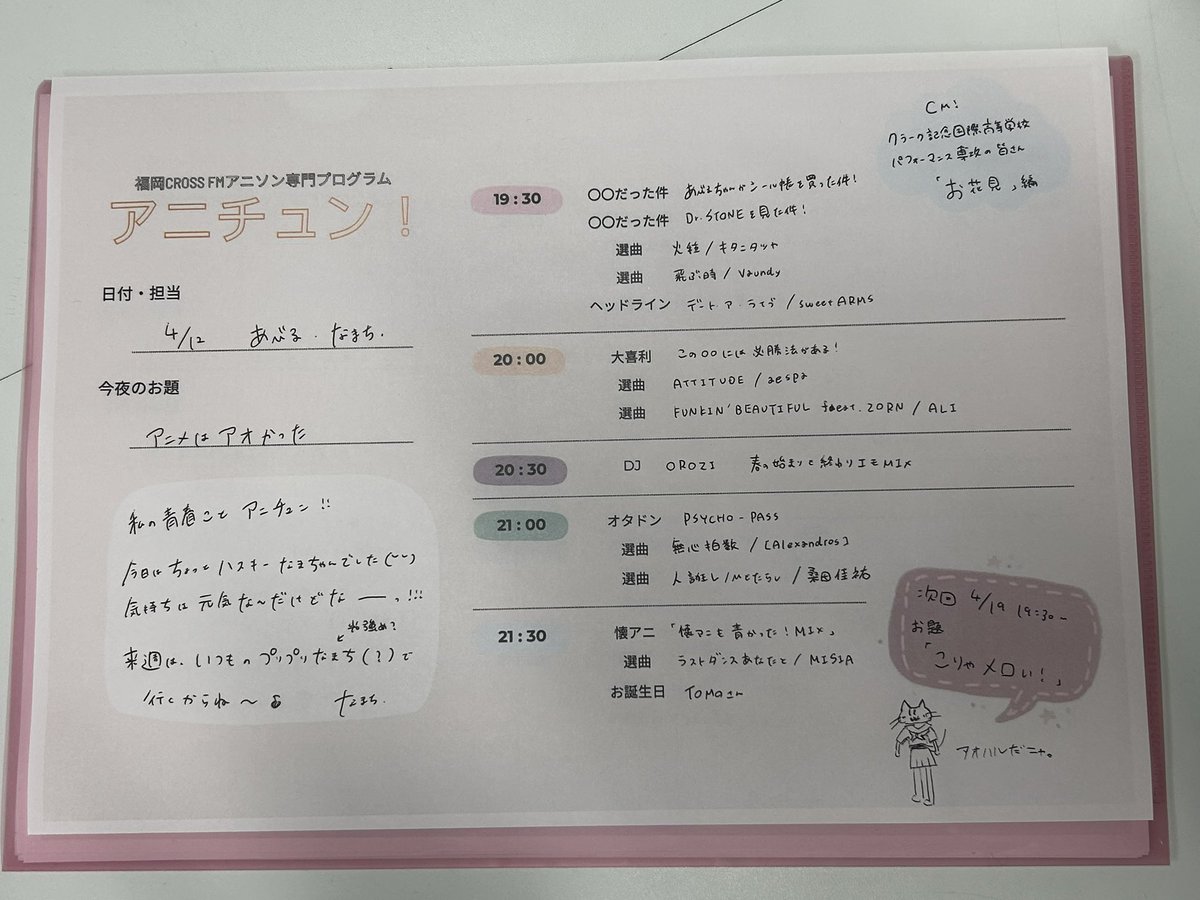 福岡CROSS FMアニソン専門プログラム
アニチュン!
日付・担当
4/12 あぶる・なまち.
今夜のお題
アニメはアオかった
私の青春こと アニチュン!!
今日はちょっとハスキーなまちゃんでした(^^)
気持ちは元気なんだけどなーっ!!!
← 光強め?
来週は、いつものプリプリなまち(?)で
行くからね〜♪ なまち.
19:30
〇〇だった件 あぶるちゃんがシール帳を買った件!
〇〇だった件 Dr.STONEを見た件!
選曲 火種/キタニタツヤ
選曲 飛ぶ時/Vaundy
ヘッドライン デート・ア・ライブ/sweet ARMS
20:00
大喜利 この〇〇には必勝法がある!
選曲 ATTITUDE/aespa
選曲 FUNKIN'BEAUTIFUL feat. ZORN/ALI
20:30
DJ OROZI 春の始まりと終わりエモMIX
21:00
オタドン PSYCHO-PASS
選曲 無心拍数/[Alexandros]
選曲 人誑し/ひとたらし/桑田佳祐
21:30
懐アニ 「懐アニも青かった!MIX」
選曲 ラストダンスあなたと/MISIA
お誕生日 TOMOさん
CM!
クラーク記念国際高等学校
パフォーマンス専攻の皆さん
「お花見」編
次回 4/19 19:30~
お題
「こりゃメロい!」
アオハルだニャ。